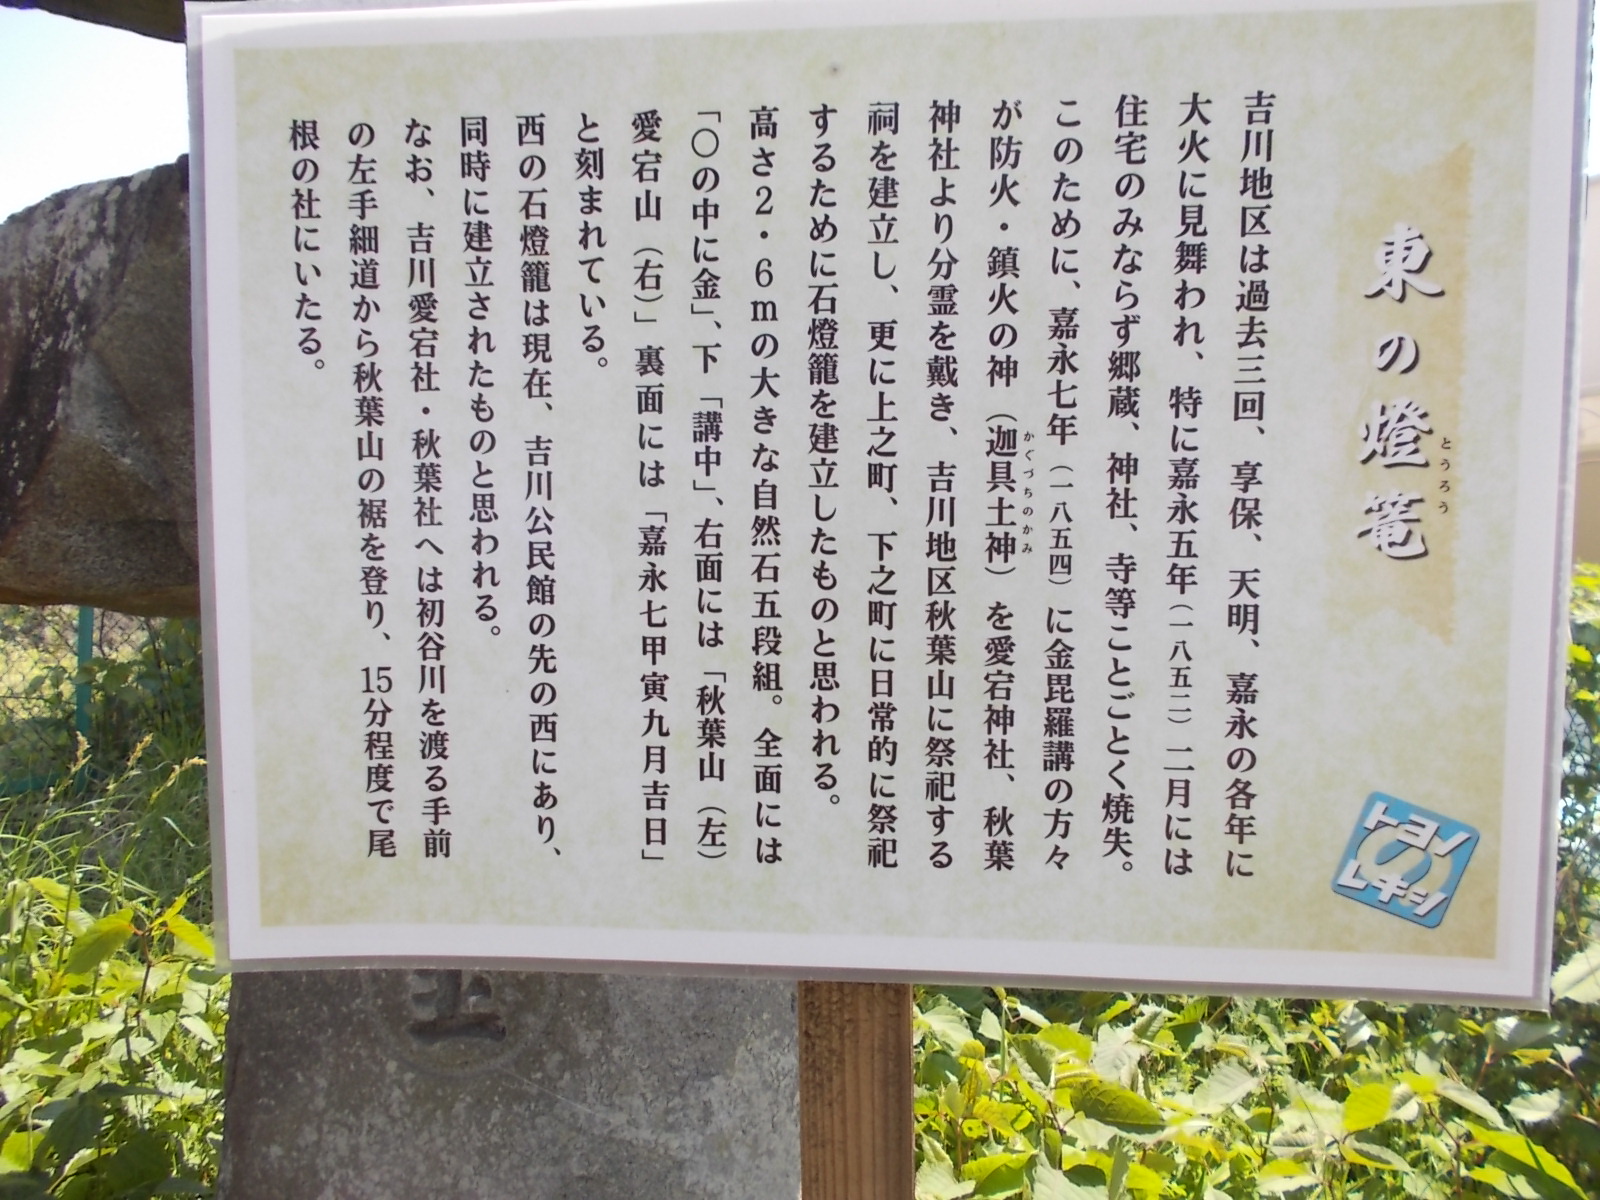 東の燈篭
とうろう
吉川地区は過去三回、享保、天明、嘉永の各年に
大火に見舞われ、特に嘉永五年（一八五二）二月には
住宅のみならず郷蔵、神社、寺等ことごとく焼失。
このために、嘉永七年（一八五四）に金毘羅講の方々
が防火・鎮火の神（迦具土神）を愛宕神社、秋葉
かぐづちのかみ
神社より分霊を戴き、吉川地区秋葉山に祭祀する
祠を建立し、更に上之町、下之町に日常的に祭祀
するために石燈籠を建立したものと思われる。
高さ2・6mの大きな自然石五段組。全面には
「〇の中に金」、下「講中」、右面には「秋葉山（左）
愛宕山（右）」裏面には「嘉永七甲寅九月吉日」
と刻まれている。
西の石燈籠は現在、吉川公民館の先の西にあり、
同時に建立されたものと思われる。
なお、吉川愛宕社・秋葉社へは初谷川を渡る手前
の左手細道から秋葉山の裾を登り、15分程度で尾
根の社にいたる。
トヨノ
ノ
レキシ